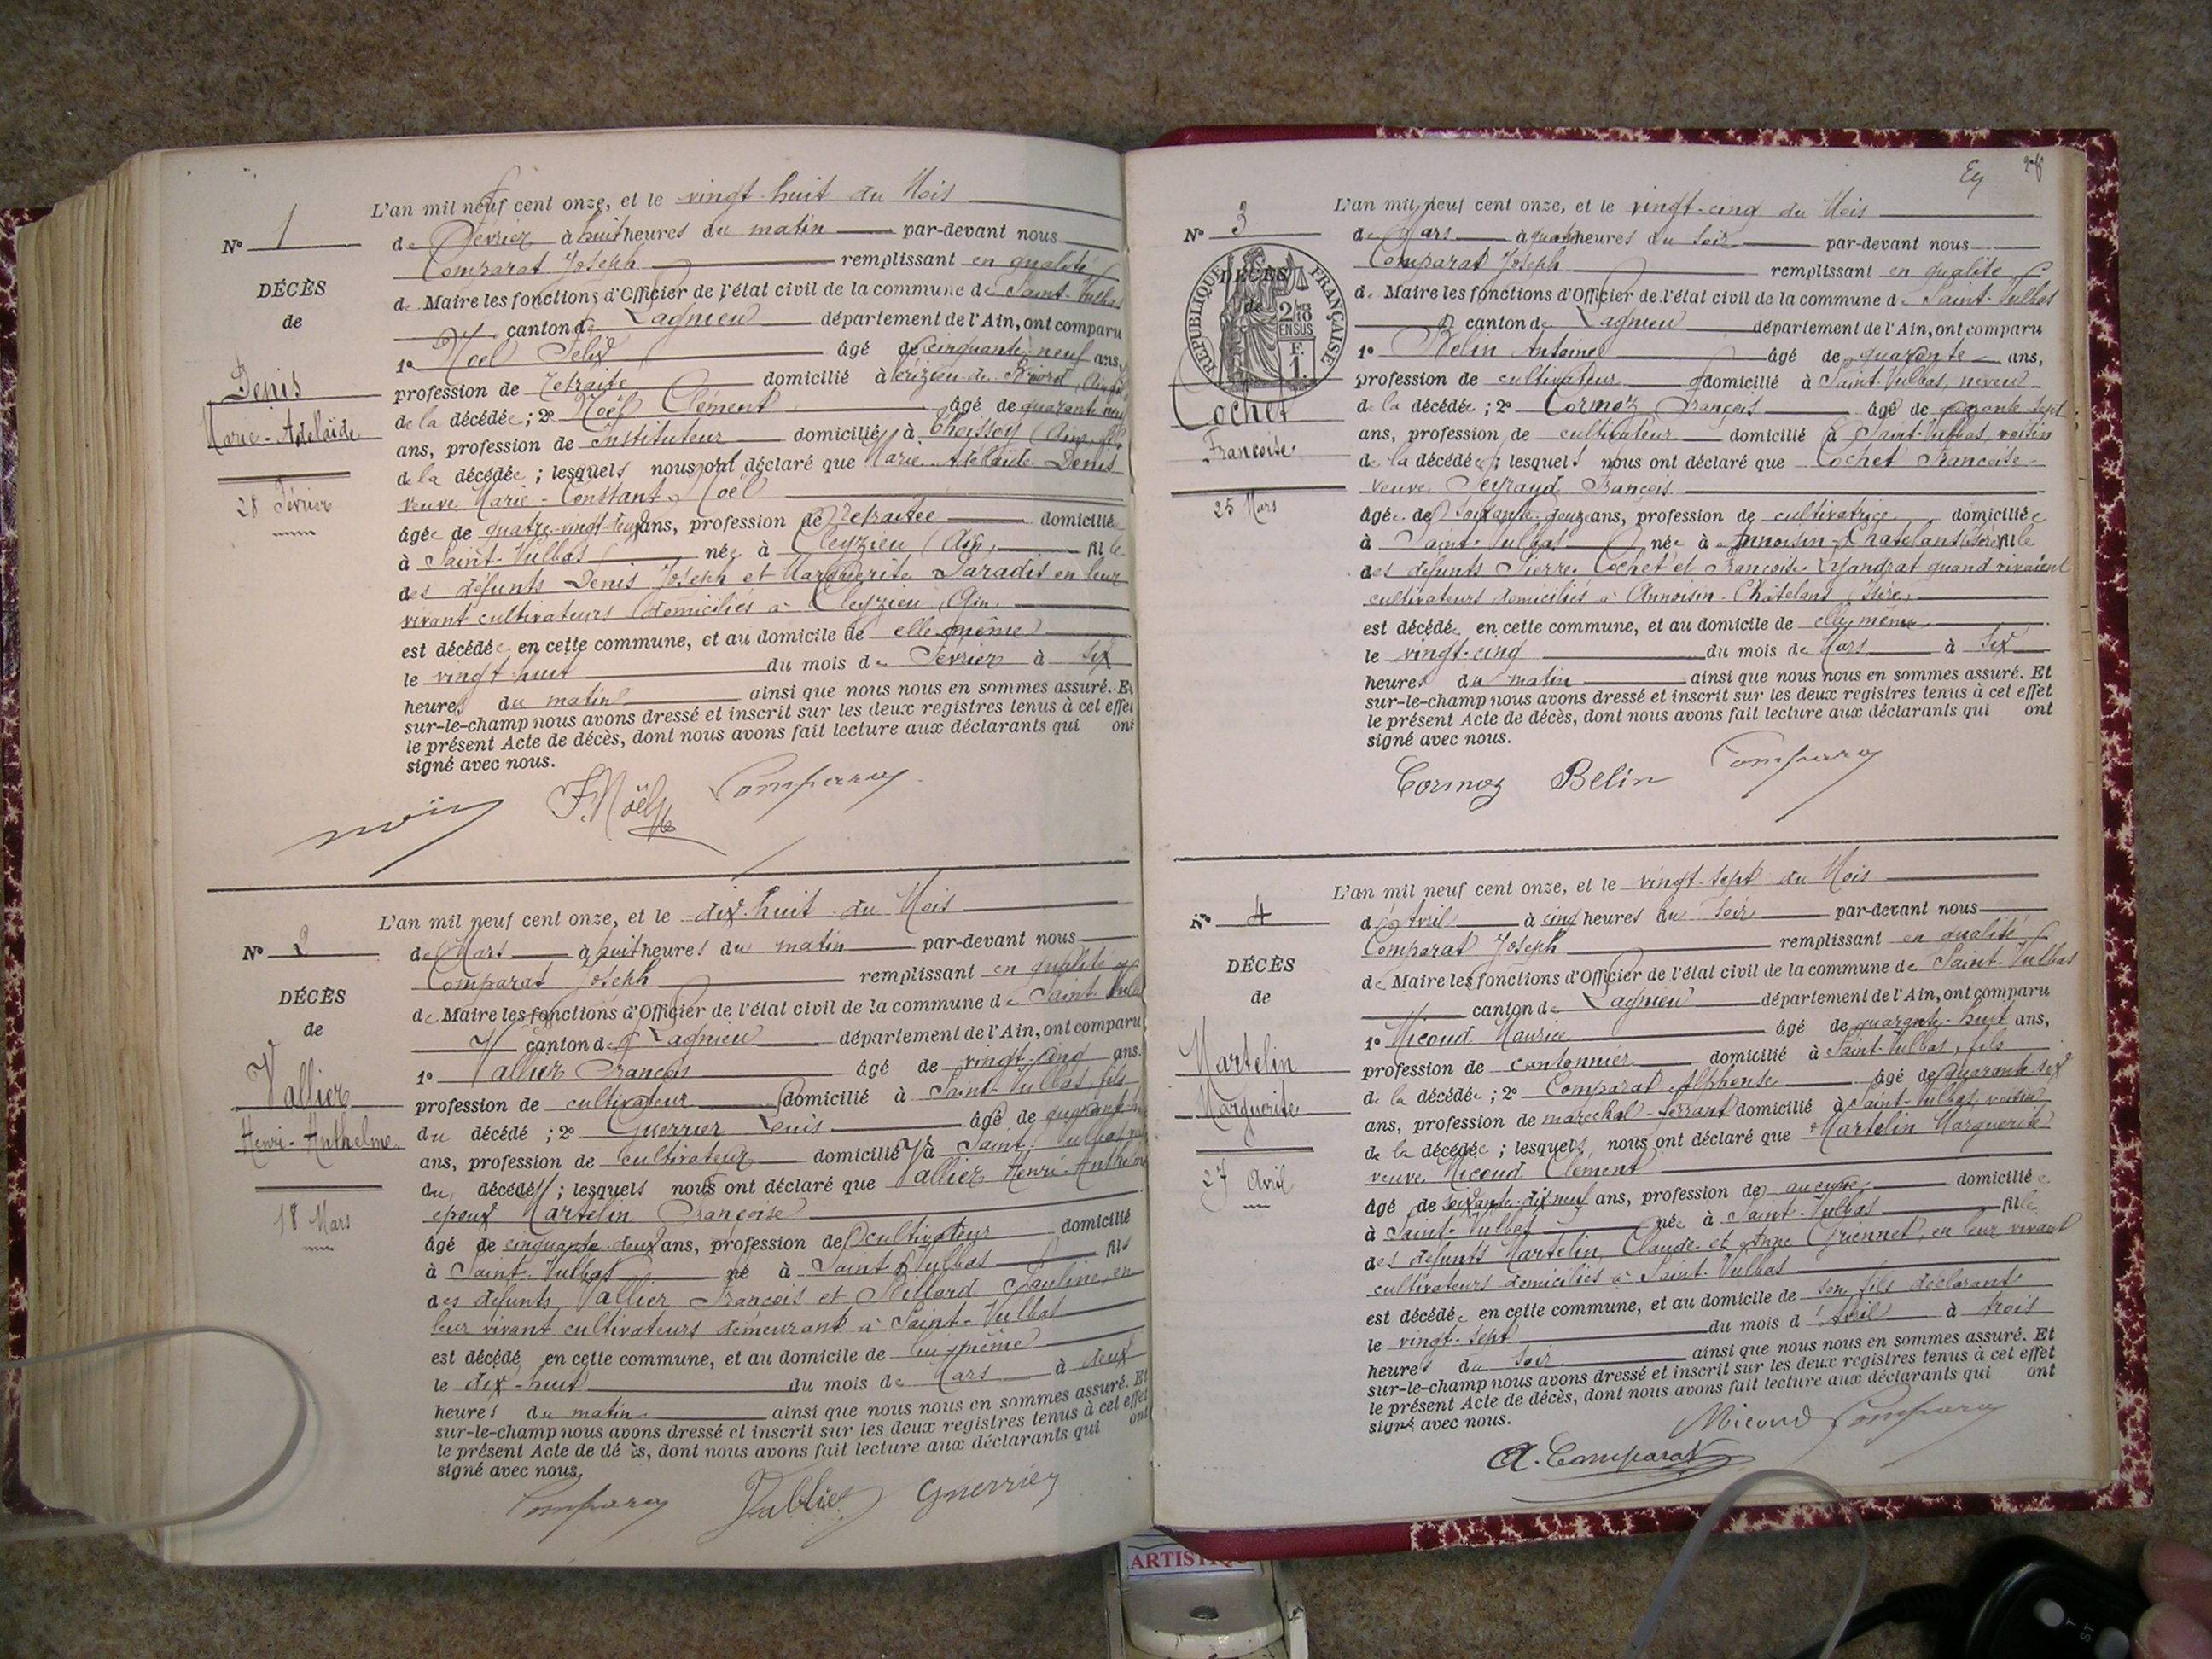 L'an mil neuf cent onze, et le vingt-huit du Mois
N° 1
de Février à huit heures du matin par-devant nous
Comparat Joseph remplissant en qualité
DÉCÈS
de Maire les fonctions d'Officier de l'état civil de la commune de Saint-Vulbas
de
canton de Lagnieu département de l'Ain, ont comparu
1° Noël Félix âgé de cinquante-neuf ans,
Denis
profession de retraité domicilié à Briord (Ain)
de la décédée ; 2° Noël Clément âgé de quarante neuf
Marie-Adelaïde
ans, profession de instituteur domicilié à Thoissey (Ain) fils
de la décédée ; lesquels nous ont déclaré que Marie Adelaïde Denis
veuve Marie-Constant Noël
28 Février
âgée de quatre-vingt-deux ans, profession de retraitée domiciliée
à Saint-Vulbas née à Cleyzieu (Ain) fille
des défunts Denis Joseph et Marguerite Paradis en leur
vivant cultivateurs domiciliés à Cleyzieu (Ain)
est décédée en cette commune, et au domicile de elle-même
le vingt-huit du mois de Février à six
heures du matin ainsi que nous nous en sommes assuré. Et
sur-le-champ nous avons dressé et inscrit sur les deux registres tenus à cet effet
le présent Acte de décès, dont nous avons fait lecture aux déclarants qui ont
signé avec nous.
F. Noël
L'an mil neuf cent onze, et le dix-huit du Mois
N° 2
de Mars à huit heures du matin par-devant nous
Comparat Joseph remplissant en qualité
DÉCÈS
de Maire les fonctions d'Officier de l'état civil de la commune de Saint-Vulbas
de
canton de Lagnieu département de l'Ain, ont comparu
1° Vallier François âgé de vingt-cinq ans.
Vallier
profession de cultivateur domicilié à Saint-Vulbas, fils
Henri-Anthelme
du décédé ; 2° Guerrier Louis âgé de
ans, profession de cultivateur domicilié à Saint-Vulbas
du décédé ; lesquels nous ont déclaré que Vallier Henri-Anthelme
époux Martelin Françoise
18 Mars
âgé de cinquante-deux ans, profession de cultivateur domicilié
à Saint-Vulbas né à Saint-Vulbas fils
des défunts Vallier François et Billard Pauline, en
leur vivant cultivateurs demeurant à Saint-Vulbas
est décédé en cette commune, et au domicile de lui-même
le dix-huit du mois de Mars à deux
heures du matin ainsi que nous nous en sommes assuré. Et
sur-le-champ nous avons dressé et inscrit sur les deux registres tenus à cet effet
le présent Acte de décès, dont nous avons fait lecture aux déclarants qui ont
signé avec nous.
Comparat Vallier Guerrier
L'an mil neuf cent onze, et le vingt-cinq du Mois
N° 3
de Mars à quatre heures du soir par-devant nous
Comparat Joseph remplissant en qualité
DÉCÈS
de
RÉPUBLIQUE FRANÇAISE
2/10 EN SUS
F. 1.
de Maire les fonctions d'Officier de l'état civil de la commune de Saint-Vulbas
canton de Lagnieu département de l'Ain, ont comparu
1° Belin Antoine âgé de quarante ans,
profession de cultivateur domicilié à Saint-Vulbas, neveu
Cochet
de la décédée ; 2° Cormoz François âgé de quarante-sept
ans, profession de cultivateur domicilié à Saint-Vulbas, voisin
Françoise
de la décédée ; lesquels nous ont déclaré que Cochet Françoise
veuve Peyraud François
25 Mars
âgée de soixante-douze ans, profession de cultivatrice domiciliée
à Saint-Vulbas née à Annoisin-Chatelans (Isère) fille
des défunts Pierre Cochet et Françoise quand vivaient
cultivateurs domiciliés à Annoisin-Châtelans (Isère)
est décédée en cette commune, et au domicile de elle-même
le vingt-cinq du mois de Mars à six
heures du matin ainsi que nous nous en sommes assuré. Et
sur-le-champ nous avons dressé et inscrit sur les deux registres tenus à cet effet
le présent Acte de décès, dont nous avons fait lecture aux déclarants qui ont
signé avec nous.
Cormoz Belin Comparat
L'an mil neuf cent onze, et le vingt-sept du Mois
N° 4
d'Avril à cinq heures du soir par-devant nous
Comparat Joseph remplissant en qualité
DÉCÈS
de Maire les fonctions d'Officier de l'état civil de la commune de Saint-Vulbas
de
canton de Lagnieu département de l'Ain, ont comparu
1° Micoud Maurice âgé de quarante-huit ans,
Martelin
profession de cantonnier domicilié à Saint-Vulbas, fils
de la décédée ; 2° Comparat Alphonse âgé de quarante-six
Marguerite
ans, profession de maréchal-ferrant domicilié à Saint-Vulbas, voisin
de la décédée ; lesquels nous ont déclaré que Martelin Marguerite
veuve Micoud Clément
27 Avril
âgé de soixante-dix-neuf ans, profession de aucune domiciliée
à Saint-Vulbas née à Saint-Vulbas fille
des défunts Martelin Claude et Anne Griennet, en leur vivant
cultivateurs domiciliés à Saint-Vulbas
est décédée en cette commune, et au domicile de son fils déclarant
le vingt-sept du mois d'Avril à trois
heures du soir ainsi que nous nous en sommes assuré. Et
sur-le-champ nous avons dressé et inscrit sur les deux registres tenus à cet effet
le présent Acte de décès, dont nous avons fait lecture aux déclarants qui ont
signé avec nous.
Micoud Comparat
A. Comparat
ARTISTIQUE
T
ST